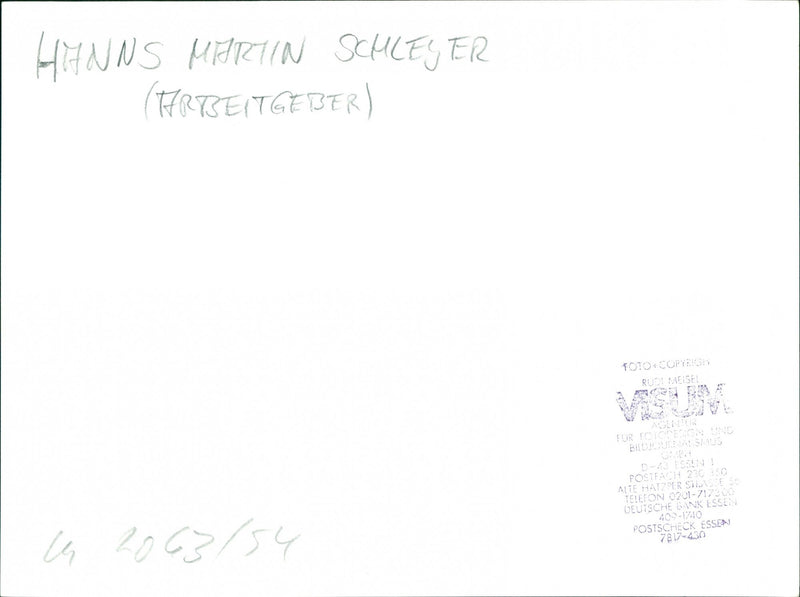 HANNS MARTIN SCHLEYER
(ARBEITGEBER)
FOTO + COPYRIGHT
RUDI MEISEL
VISUM
AGENTUR
FÜR FOTODESIGN UND
BILDJOURNALISMUS
GMBH
D-43 ESSEN 1
POSTFACH
ALTE HATZPER STRASSE
TELEFON 0201-
DEUTSCHE BANK ESSEN
409-1740
POSTSCHECK ESSEN
7817-430
2063/54